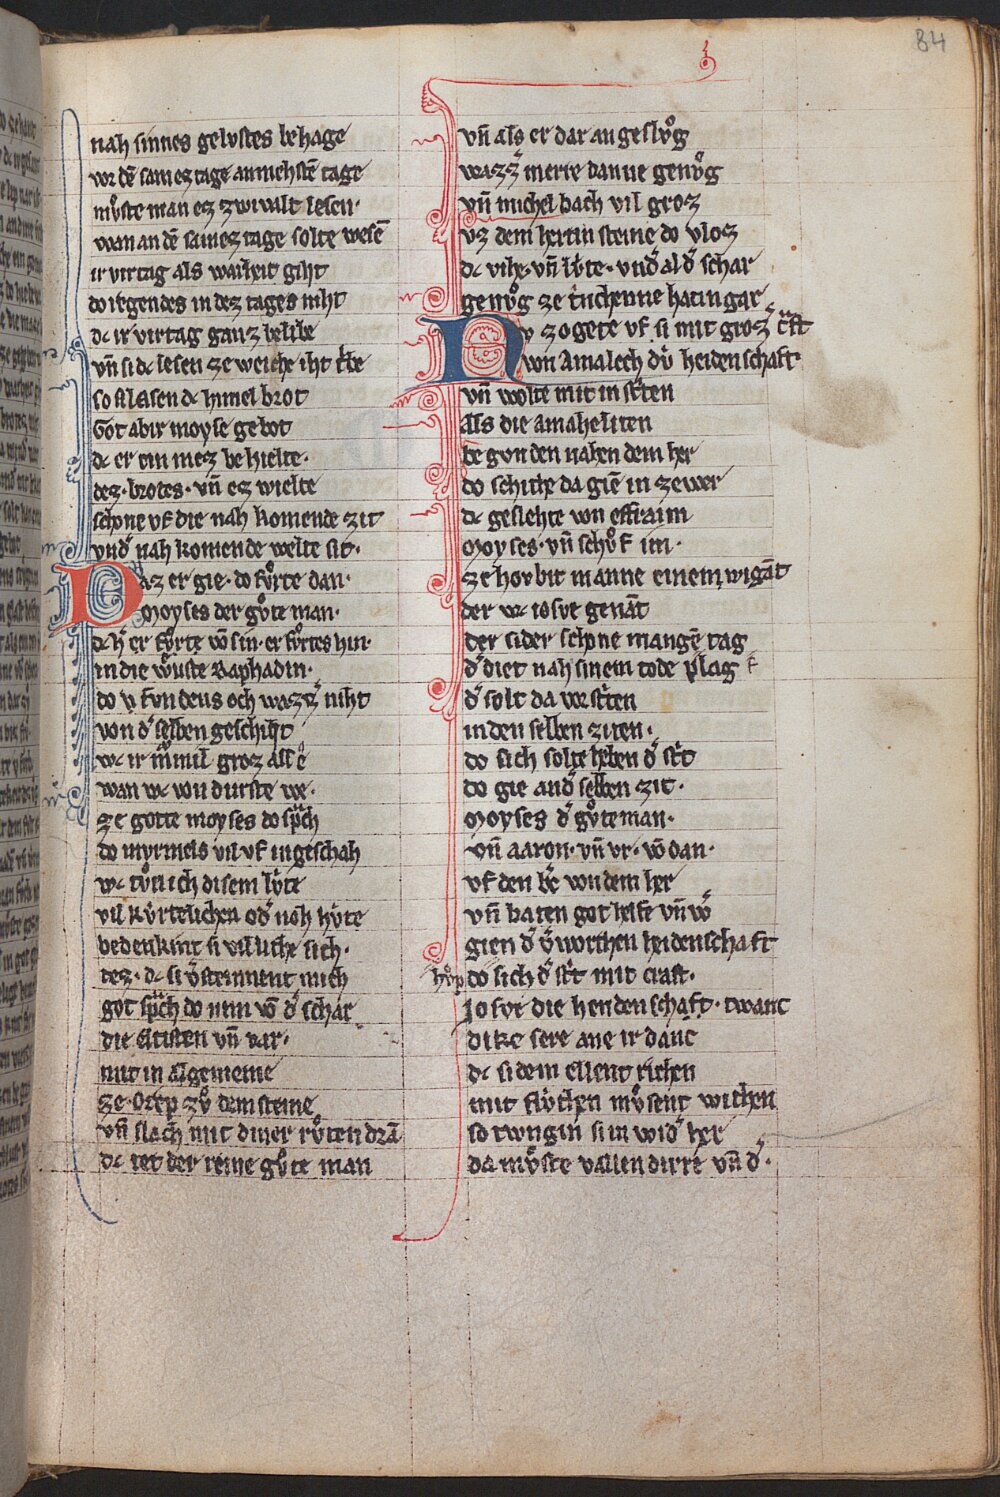 84
nah sinnes gelvstes behage
vor dē samez tage an nehstē tage
mvͦste man ez zwivalt lesen·
wan an dē samez tage solte wesē
ir virtag als warheit giht
do irgendes in dez tages niht
dc ir virtag ganz belibe
vn̄ si dc lesen ze weiche iht t͛be
so si lasen dc himel brot
Got abir moyse gebot
dc er ein mez behielte·
dez· brotes· vn̄ ez wielte
schone vf die nah komende zit
vnd͛ nah komende welte sit·
Daz er gie· do fvͦrte dan·
moyses der gvͦte man·
dc h͛ er fvͦrte vō sin· er fvͦrtes hin·
in die wuͤste Raphadin·
do vundens och wazz͛ niht
von d͛ selben geschiht
wc ir mͦmil groz als e
wan wc von durste we·
ze gotte moyses do spͣch
do myrmels vil vf in geschah
wc tvͦn ich disem lvͥte
vil kvͥrtzlichen od͛ noh hvͥte
bedenkint si vil lihte sich·
dez· dc si v͛steinnent mich
got spͣch do nim vō d͛ schar
die eltisten vn̄ var·
mit in algemeine
ze· Orep zvͦ dem steine
vn̄ slach mit diner rvͦten drā
dc tet der reine gvͦte man
vn̄ als er dar an geslvͦg
wazz͛ merte danne genvͦg
vn̄ michel bach vil groz
vz dem hertin steine do vloz
dc vihe· vn̄ lvͥte· vnd͛ al d͛ schar
genvͦg ze trinchenne hatin gar
Nv zogete vf si mit groz͛ cͣft
von Amalech dvͥ heidenschaft·
vn̄ wolte mit in st͛ten
Als die amaheliten
begvnden nahen dem her
do schihte da gīe in ze wer
dc geslehte von effraim
Moyses· vn̄ schvͦf im·
ze hovbit manne einem wigāt
der wc iosve genāt
der sider schone mangē tag
d͛ diet nah sinem tode pflag
d͛ solt da vor st͛ten
in den selben ziten·
do sich solte heben d͛ st͛t
do gie an d͛ selben zit·
Moyses d͛ gvͦte man·
vn̄ aaron· vn̄ vr· vō dan·
vf den b͛c von dem her
vn̄ baten got helfe vn̄ w͛
gien d͛ v͛worhten heidenschaft
hvͦp do sich d͛ st͛t mit craft·
Josve die heidenschaft· twanc
dike sere ane ir danc
dc si dem ellent richen
mit flvͥhten mvͦsent wichen
so twngin si in wid͛ her
da mvͦste vallen dirre vn̄ d͛·